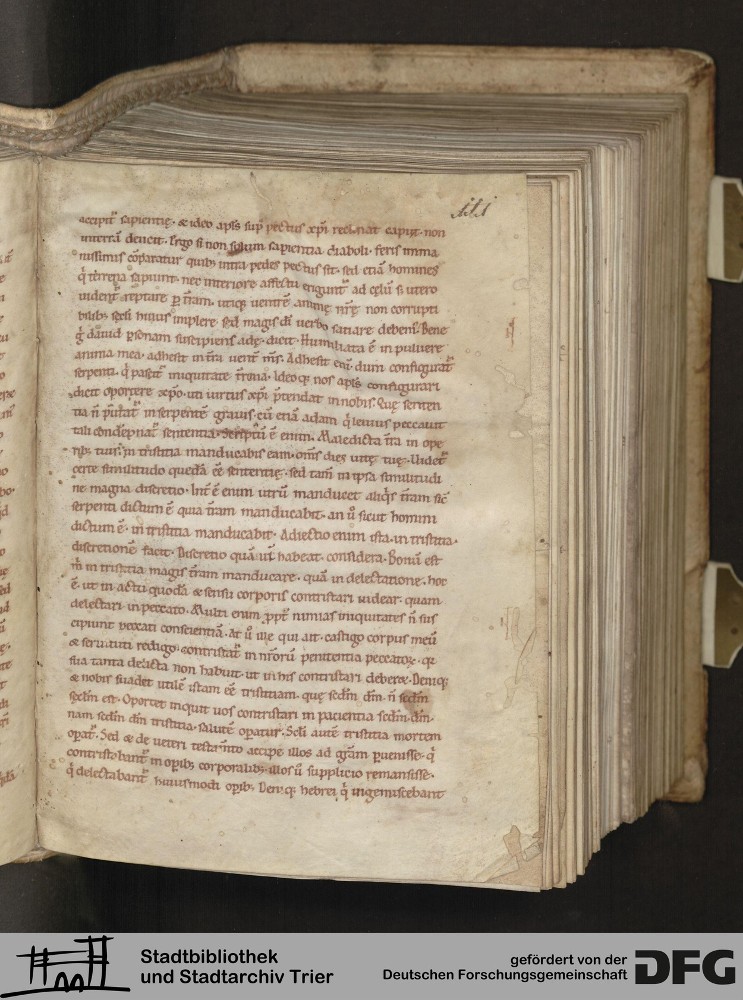 accipit᷑ sapientię. & ideo apłs sup̄ pectus xp̄i reclinat caput. non
in terrā deicit. Ergo si non solum sapientia diaboli. feris imma
nissimis cōparatur quib; intra pedes pectus sit. sed etiā homines
q̇ terrena sapiunt. nec interiore affectu erigunt᷑ ad cęlū si utero
uident᷑ reptare p̄ t̄ram. utiq; uentrē animę nr̄ę non corrupti
bilib; sęcli huius implere. sed magis dī uerbo satiare debem᷒. Bene
g̊ dauid p̄sonam suscipiens adę. dicit. Humiliata ē in puluere
anima mea. adhesit in t̄ra uent̄ ms̄. Adhesit eni᷑. dum configurat᷑
serpenti. q̇ pascit᷑ iniquitate t̄rena. Ideoq; nos apłs configurari
dicit oportere xp̄o. uti uirtus xp̄i p̄tendat in nobis. Quę senten
tia n̄ putat᷑ in serpentē grauis. cū etiā adam q̇ leuius peccauit
tali condēpnat᷑ sententia. Scriptū ē enim. Maledicta t̄ra in ope
rib; tuis. in tristitia manducabis eam. om̄s dies uitę tuę. Uidet᷑
certe similitudo quedā ēē sententię. sed tam̄ in ipsa similitudi
ne magna discretio. Int̄ ē enim utrū manducet aliq̇s t̄ram sic̄
serpenti dictum ē quia t̄ram manducabit. an ů sicut homini
dictum ē. in tristitia manducabit. Adiectio enim ista. in tristitia.
discretionē facit. Discretio quā uī habeat. considera. Bonū est
m̄ in tristitia magis t̄ram manducare. quā in delectatione. hoc
ē. ut in actu quodā & sensu corporis contristari uidear. quam
delectari in peccato. Multi enim ppt̄ nimias iniquitates n̄ sus
cipiunt peccati conscientiā. At ů ille qui ait. castigo corpus meū
& seruituti redigo. contristat᷑ in nr̄orū penitentia peccatoꝝ. qꝛ
sua tanta delicta non habuit. ut in his contristari deberet. Deniq;
& nobis suadet utilē istam ēē tristitiam. quę scdm̄ dm̄. n̄ scdm̄
sęclm̄ est. Oportet inquit uos contristari in pacientia scdm̄ dm̄.
nam scdm̄ dm̄ tristitia. salutē operatur. Scłi autē tristitia mortem
opat᷑. Sed & de ueteri testam̄nto accipe illos ad gr̄am puenisse. q̇
contristabant᷑ in opib; corporalib;. illos ů supplicio remansisse.
q̇ delectabant᷑ huiusmodi opib;. Deniq; hebrei q̇ ingemiscebant
Stadtbibliothek
und Stadtarchiv Trier
gefördert von der
Deutschen Forschungsgemeinschaft
DFG